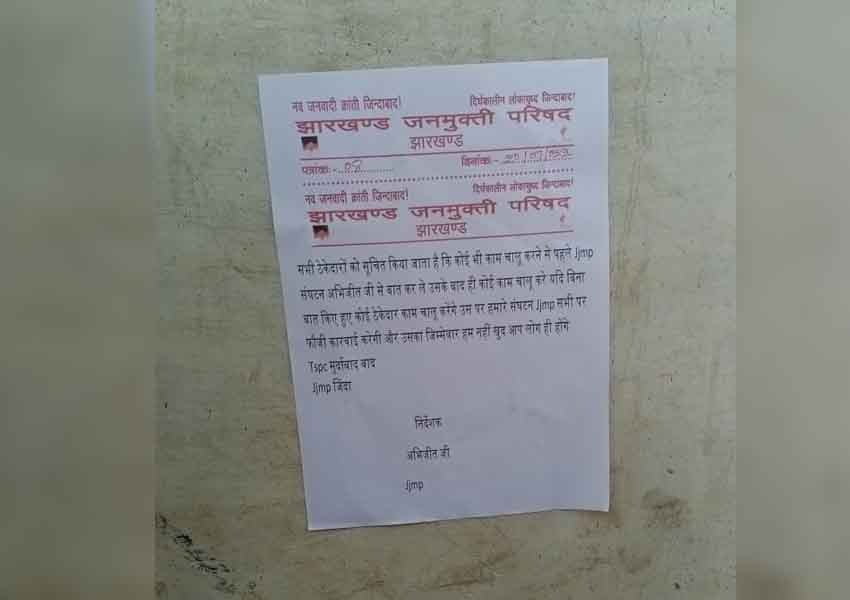 नव जनवादी क्रांती जिन्दाबाद! दिर्घकालीन लोकायुध्द जिन्दाबाद!
झारखण्ड जनमुक्ती परिषद
झारखण्ड
पत्रांकः- 08 दिनांकः-
नव जनवादी क्रांती जिन्दाबाद! दिर्घकालीन लोकायुध्द जिन्दाबाद!
झारखण्ड जनमुक्ती परिषद
झारखण्ड
सभी ठेकेदारों को सूचित किया जाता है कि कोई भी काम चालू करने से पहले Jjmp
संघटन अभिजीत जी से बात कर ले उसके बाद ही कोई काम चालू करे यदि बिना
बात किए हुए कोई ठेकेदार काम चालू करेंगे उस पर हमारे संघटन Jjmp सभी पर
फौजी कारवाई करेगी और उसका जिम्मेवार हम नहीं खुद आप लोग ही होंगे
Tspc मुर्दाबाद बाद
Jjmp जिंदा
निर्देशक
अभिजीत जी
Jjmp